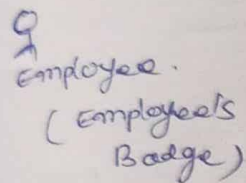 Employee.
(Employee's
Badge)